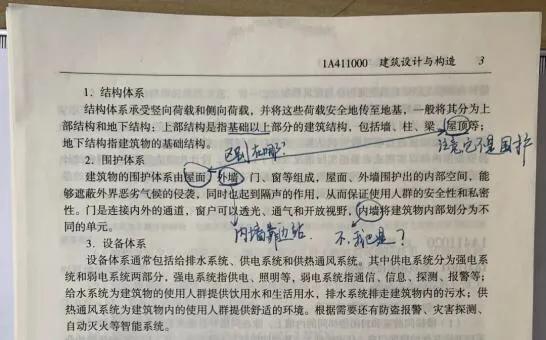 1A411000 建筑设计与构造 3
1. 结构体系
结构体系承受竖向荷载和侧向荷载，并将这些荷载安全地传至地基，一般将其分为上
部结构和地下结构：上部结构是指基础以上部分的建筑结构，包括墙、柱、梁、屋顶等；
地下结构指建筑物的基础结构。
区别在哪？
注意它不是围护
2. 围护体系
建筑物的围护体系由屋面、外墙、门、窗等组成，屋面、外墙围护出的内部空间，能
够遮蔽外界恶劣气候的侵袭，同时也起到隔声的作用，从而保证使用人群的安全性和私密
性。门是连接内外的通道，窗户可以透光、通气和开放视野，内墙将建筑物内部划分为不
同的单元。
内墙靠边站.
不,我也是？
3. 设备体系
设备体系通常包括给排水系统、供电系统和供热通风系统。其中供电系统分为强电系
统和弱电系统两部分，强电系统指供电、照明等，弱电系统指通信、信息、探测、报警等；
给水系统为建筑物的使用人群提供饮用水和生活用水，排水系统排走建筑物内的污水；供
热通风系统为建筑物内的使用人群提供舒适的环境。根据需要还有防盗报警、灾害探测、
自动灭火等智能系统。